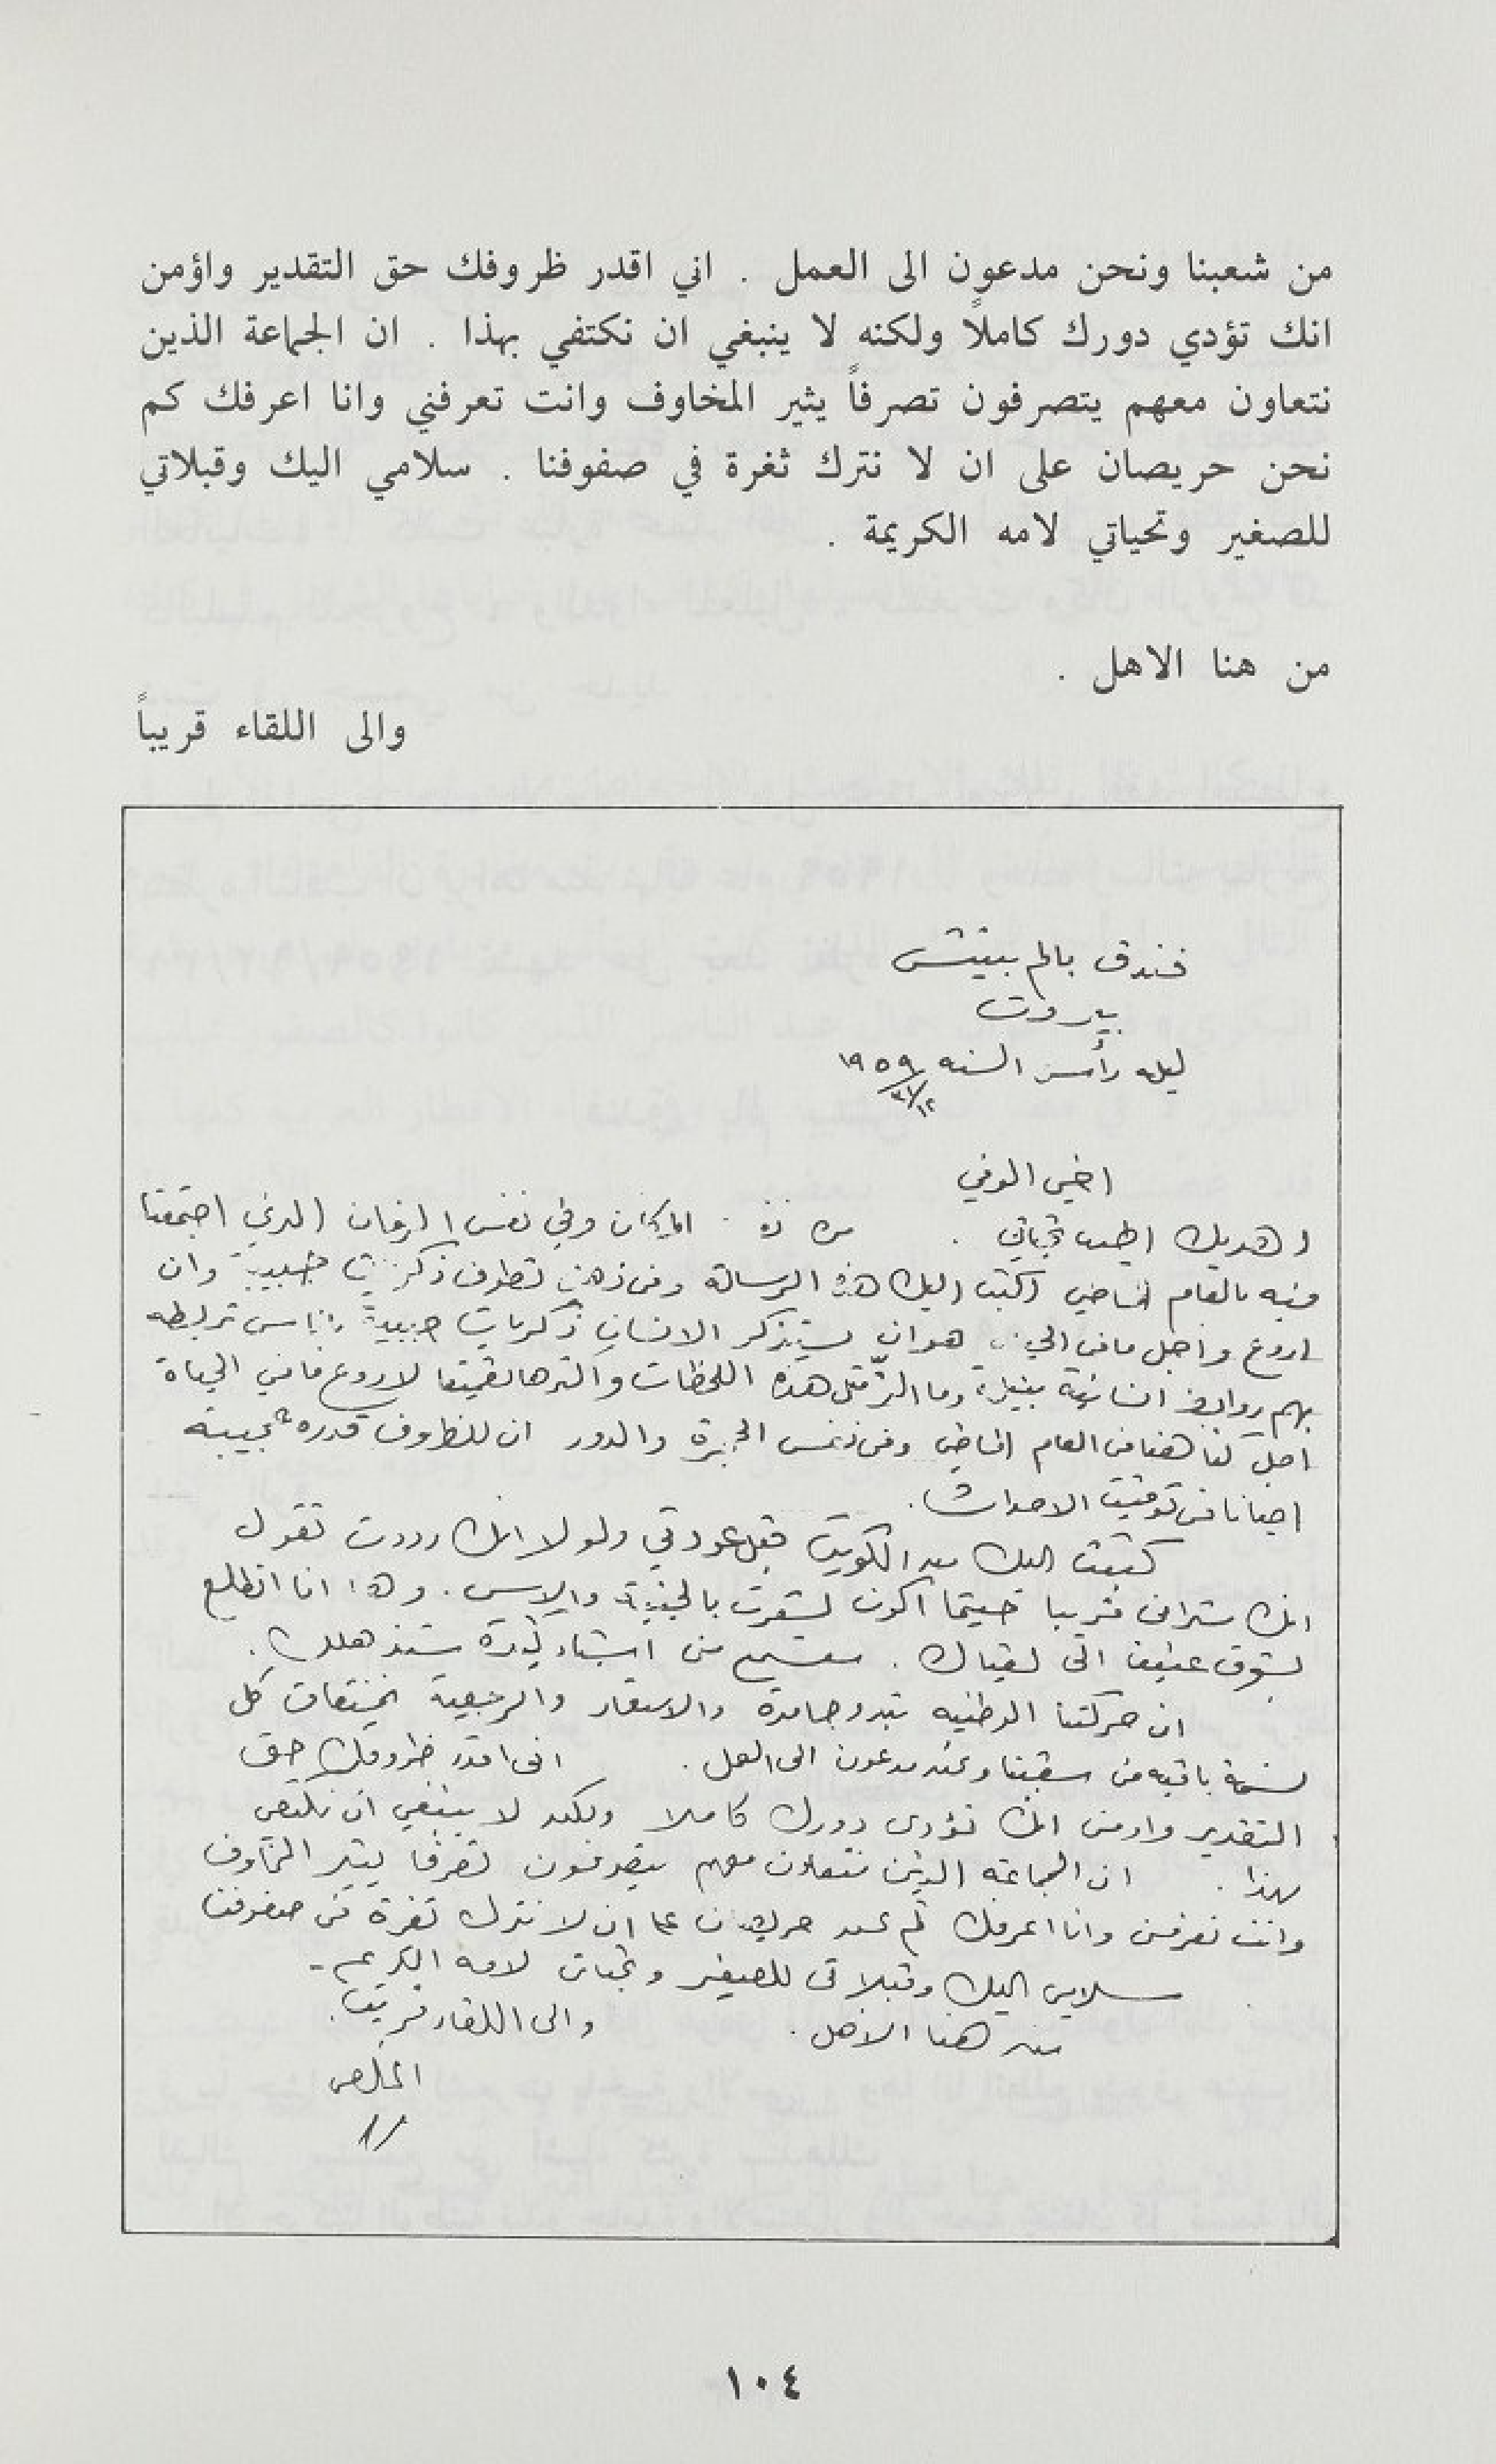 من شعبنا ونحن مدعون الى العمل . اني اقدر ظروفك حق التقدير واؤمن
انك تؤدي دورك كاملاً ولكنه لا ينبغي ان نكتفي بهذا . ان الجماعة الذين
نتعاون معهم يتصرفون تصرفاً يثير المخاوف وانت تعرفني وانا اعرفك كم
نحن حريصان على ان لا نترك ثغرة في صفوفنا . سلامي اليك وقبلاتي
للصغير وتحياتي لامه الكريمة .
من هنا الاهل .
والى اللقاء قريباً
فندق بالم بيتش
بيروت
ليله رأس السنه ١٩٥٩
٣١/١٢
اخي الوفي
اهديك اطيب تحياتي . من المكان وفي نفس الزمان الذي اجتمعنا
فيه بالعام الماضي اكتب اليك هذه الرسالة وفي ذهني تطوف ذكريات حبيبة وان
اروع واجمل ما في الحياة هو ان يستذكر الانسان ذكريات حبيبة باناس تربطه
بهم روابط انسانية نبيلة وما الذّ مثل هذه اللحظات واكثرها تقييما لاروع ما في الحياة
اجل كنا هنا في العام الماضي وفي نفس الحجرة والدور ان للظروف قدره عجيبة
احيانا في توقيت الاحداث .
كتبت اليك من الكويت قبل عودتي ولولا انك رددت تقول
انك ستراني قريبا حيثما اكون لشعرت بالخيبة والاسى . وها انا اتطلع
بشوق عنيف الى لقياك . ستسمع مني اشياء كثيرة ستذهلك .
ان حركتنا الوطنيه تبدو جامدة والاستعمار والرجعية يخنقان كل
نسمة باقيه من شعبنا ونحن مدعون الى العمل . انى اقدر ظروفك حق
التقدير واؤمن انك تؤدى دورك كاملا ولكنه لا ينبغي ان نكتفي
بهذا . ان الجماعه الذين نتعاون معهم يتصرفون تصرفا يثير المخاوف
وانت تعرفني وانا اعرفك كم نحن حريصان على ان لا نترك ثغرة في صفوفنا
سلامي اليك وقبلاتى للصغير وتحياتي لامه الكريمه -
من هنا الاهل . والى اللقاء قريبا .
المخلص
١٠٤